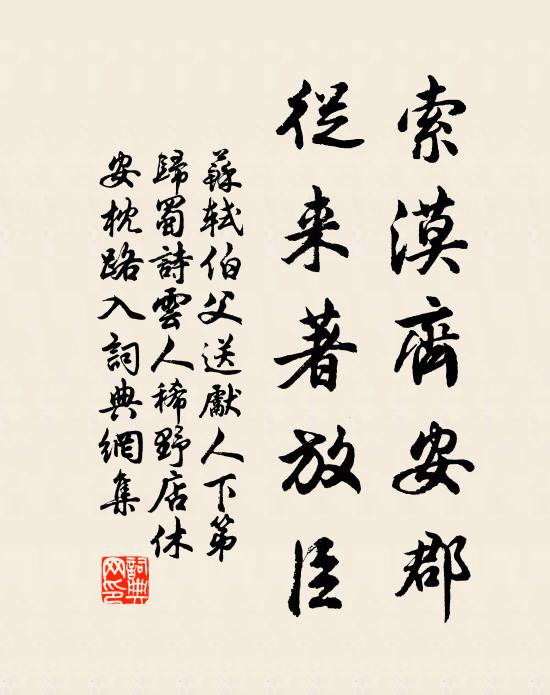 索漠齊安郡
從來著放臣
蘇軾伯父送獻人下第
歸蜀詩雲人稀野店休
安枕路入詞典網集
詞典
网印